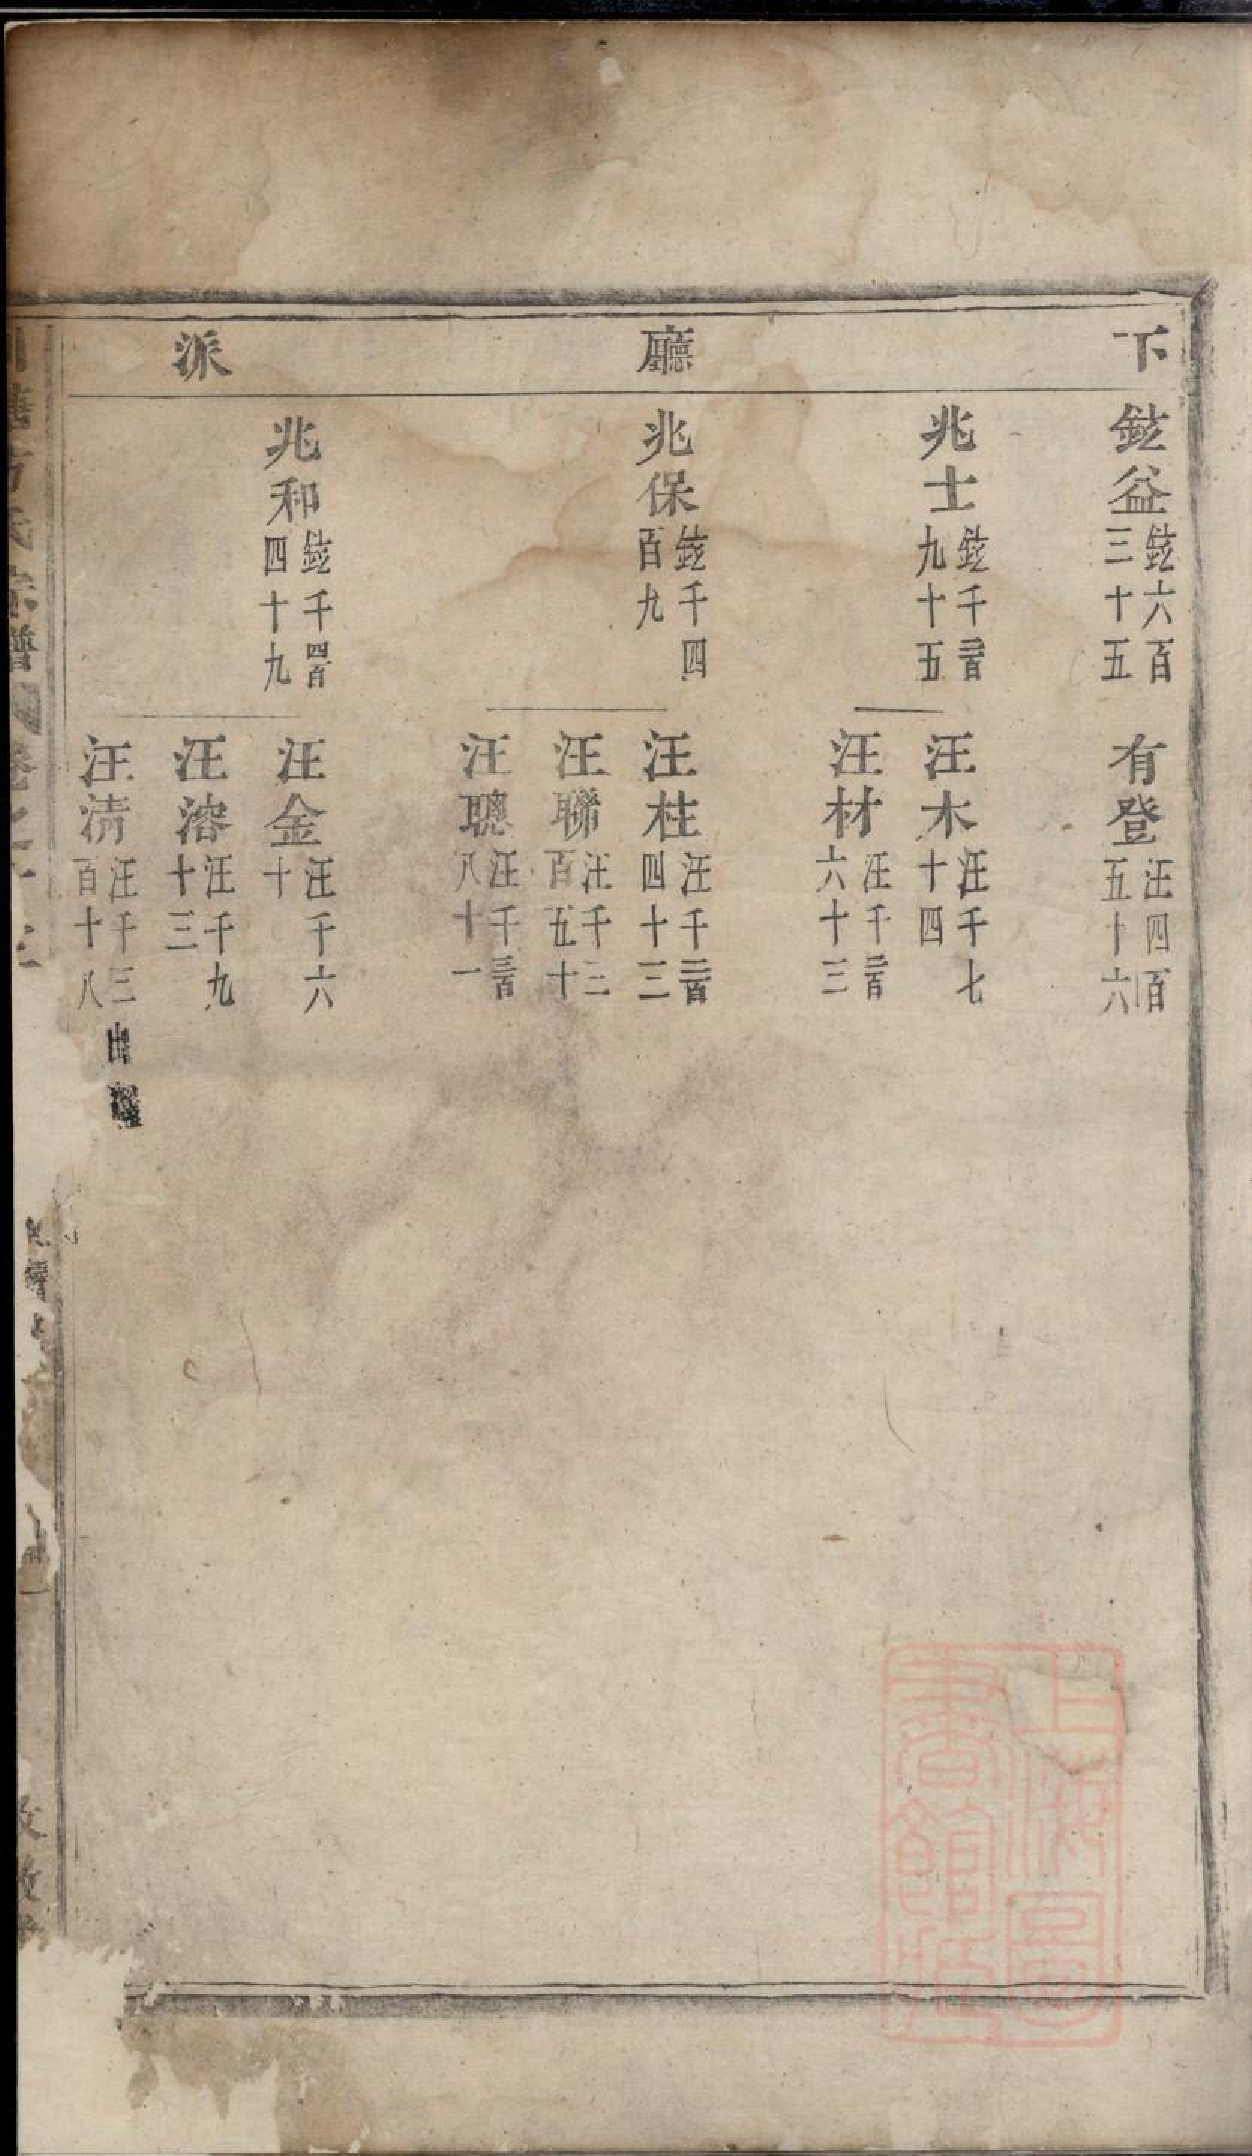 下廳派
鉉益 鉉六百三十五
有登 汪四百五十六
兆士 鉉千三百九十五
汪木 汪千七十四
汪材 汪千二百六十三
兆保 鉉千四百九
汪柱 汪千二百四十三
汪聯 汪千三百五十
汪聰 汪千三百八十一
兆和 鉉千四百四十九
汪金 汪千六十
汪溶 汪千九十三
汪淸 汪千三百十八 出
氏宗譜
上海圖書館藏